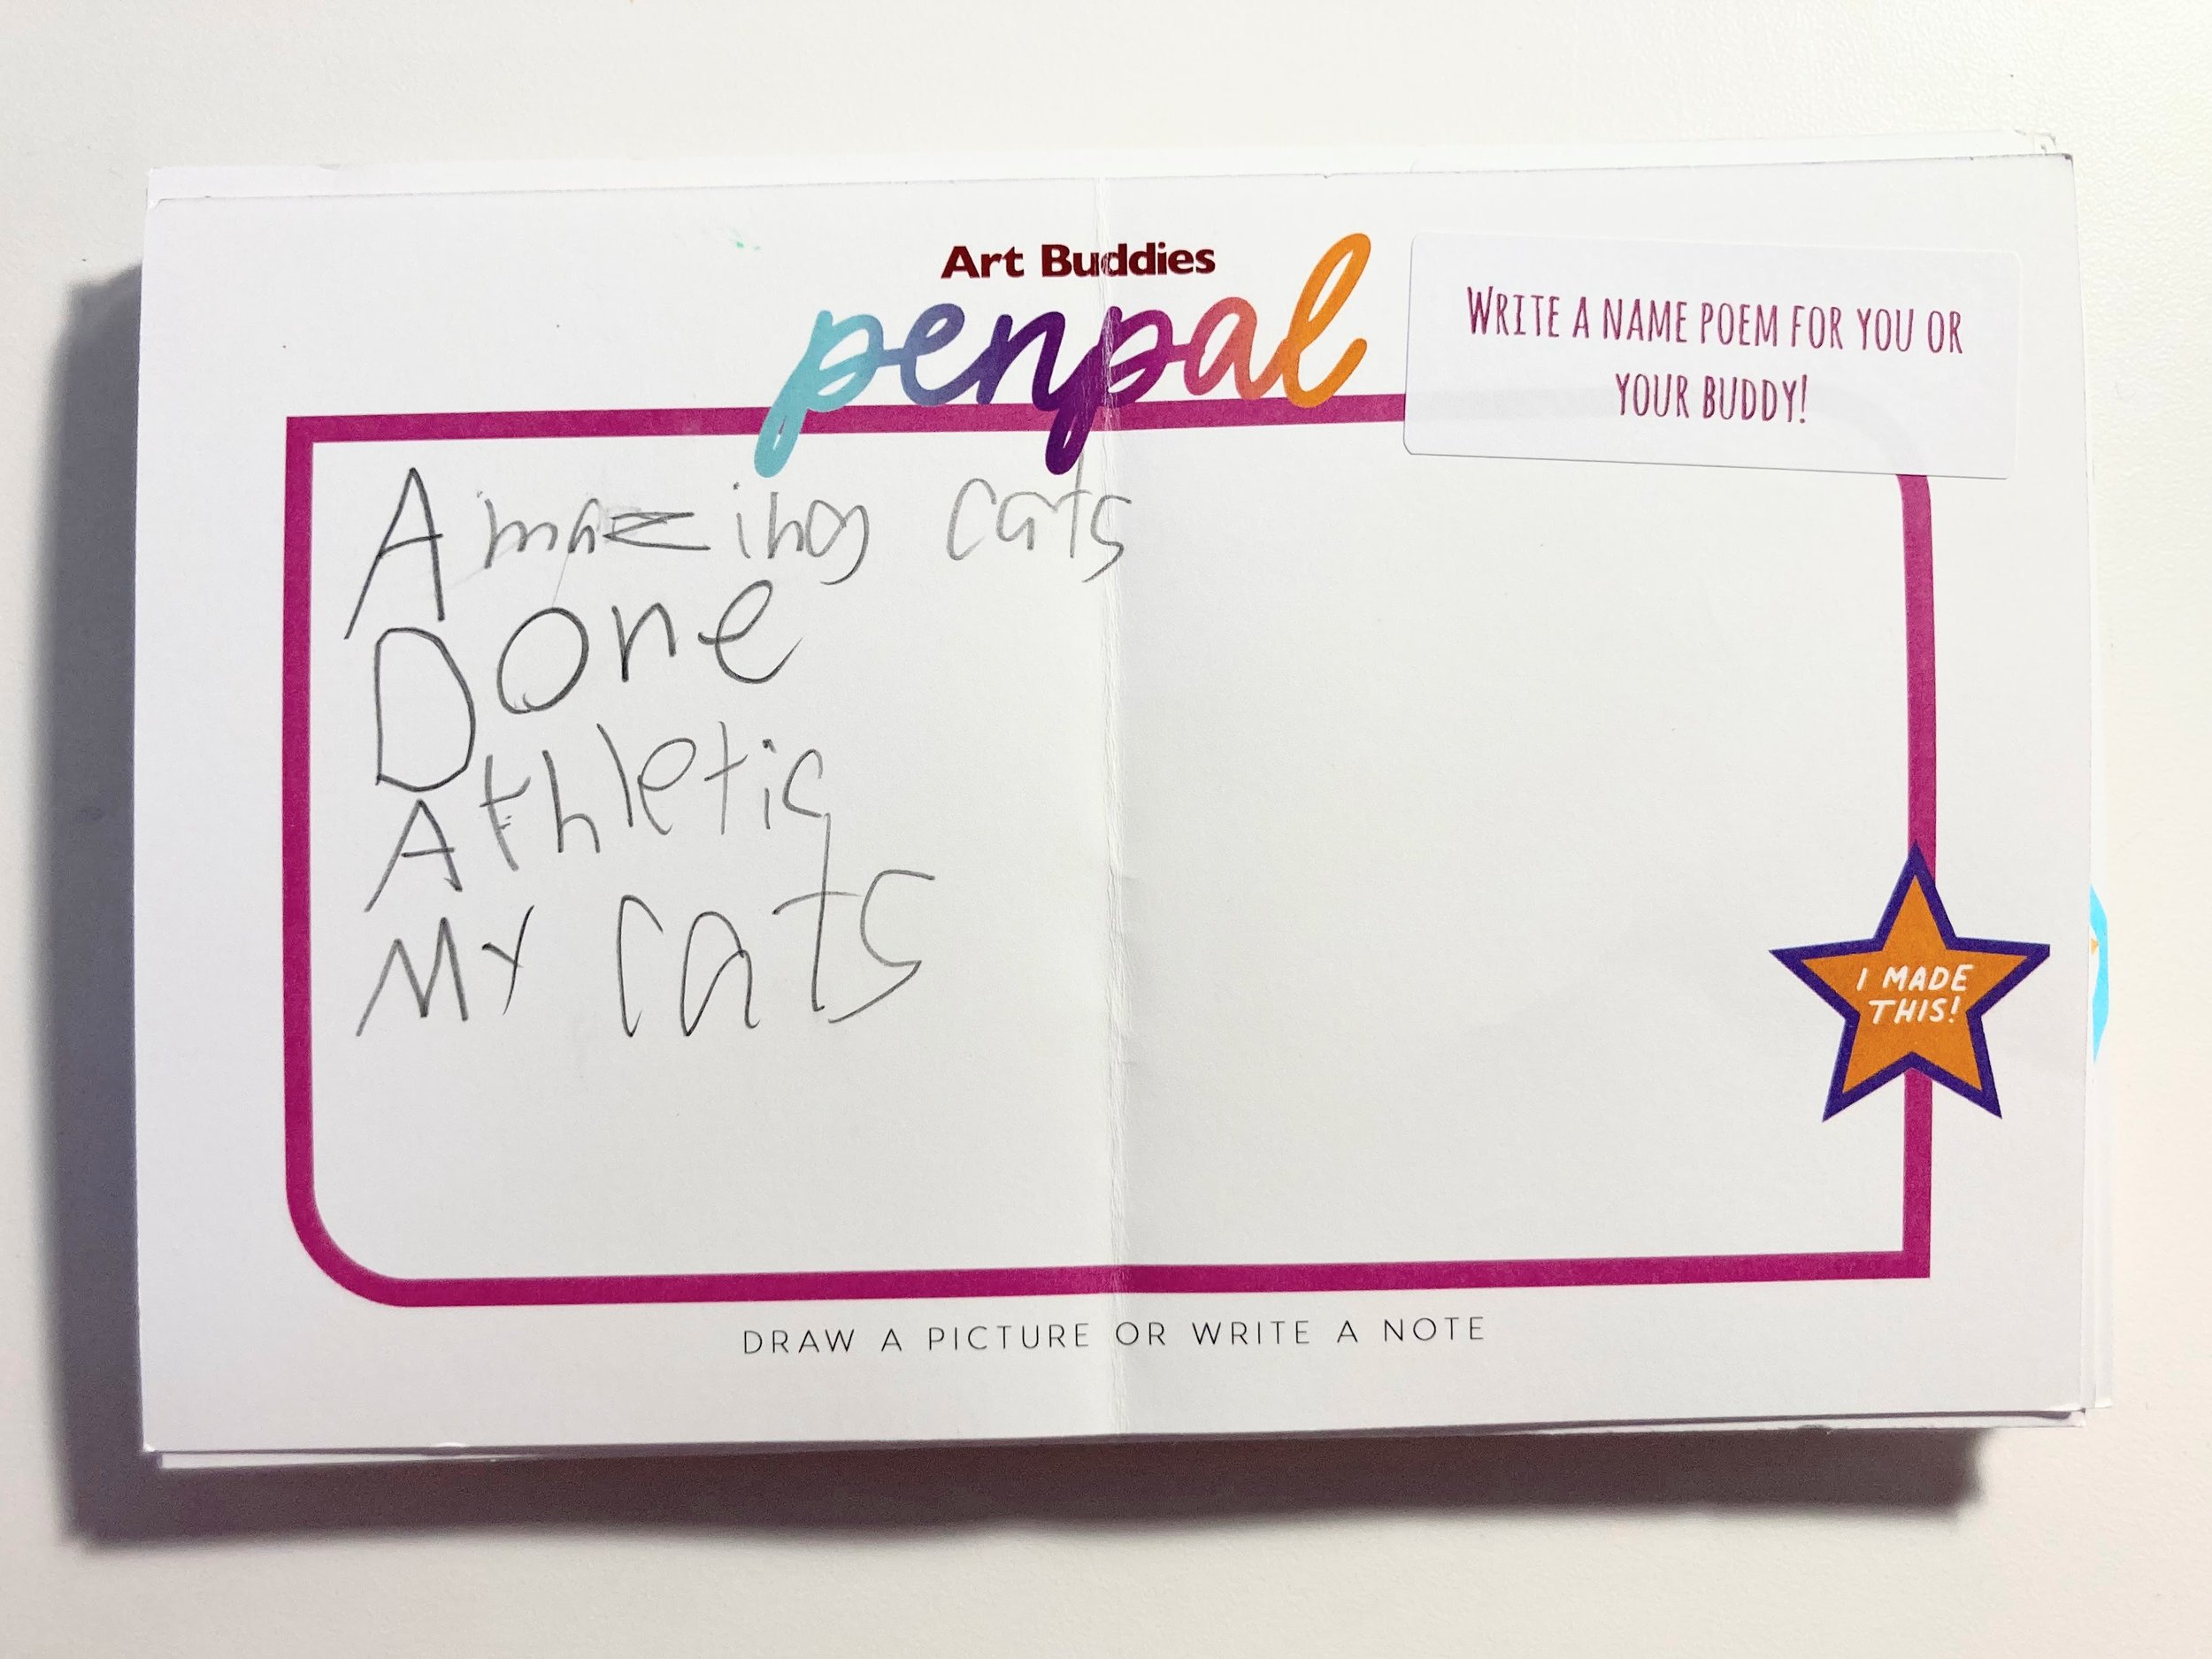 Art Buddies
penpal
WRITE A NAME POEM FOR YOU OR
YOUR BUDDY!
Amazing cats
Done
Athletic
My cats
I MADE
THIS!
DRAW A PICTURE OR WRITE A NOTE